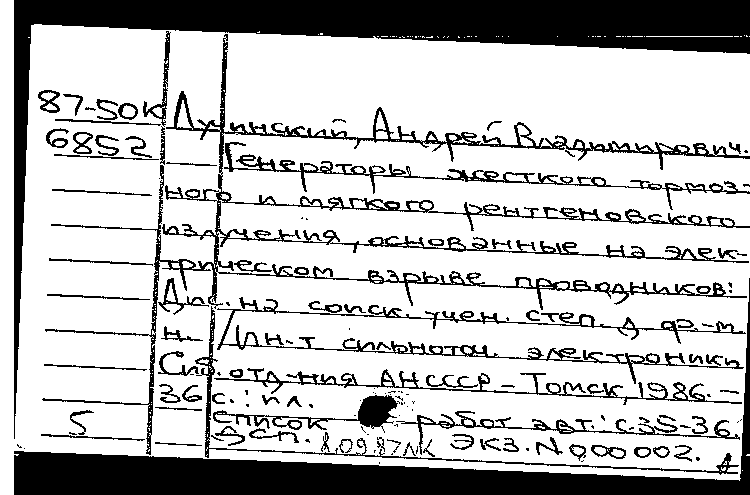 87-50к Лучинский, Андрей Владимирович.
6852 Генераторы жесткого тормоз-
ного и мягкого рентгеновского
излучения, основанные на элек-
трическом взрыве проводников:
Дис. на соиск. учен. степ. д ф.-м.
н. /Ин-т сильноточ. электроники
Сиб. отд-ния АНСССР - Томск, 1986. -
36 с.: ил.
Список работ авт.: с.35-36.
5 Дсп. 8.09.87 NK Экз. N 000002.